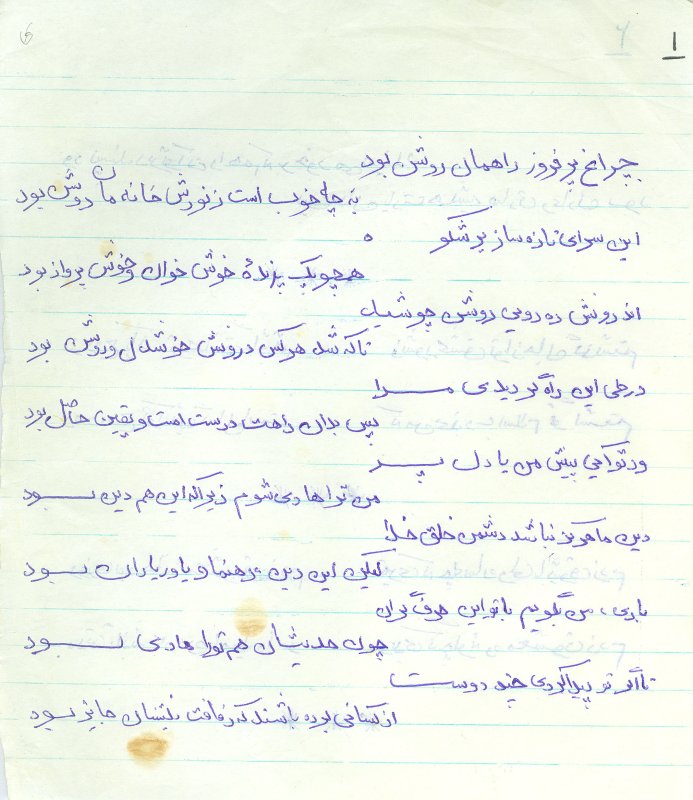 ۶
۱
چراغ بر فروز راهمان روشن بود
به چه خوب است ز نورش خانه مان روشن بود
این سرای تازه ساز پر شکو ه
همچو یک پرندهٔ خوش خوان و خوش پرواز بود
اندرونش ده روبی روشن چو
تا که شد هر کس درونش خوشدل و روشن بود
در طی این راه گر دیدی مرا
پس بدان راهت درست است و یقین حاصل بود
ور تو آیی پیش من با دل پر
من ترا هادی شوم زیرا که این هم دین بود
دین ما هرگز نباشد دشمن خلق خدا
لیکن این دین رهنما و یاور یاران بود
باری، من بگویم با تو این حرف گران
چون حدیثشان هم ترا هادی بود
تا اگر تو پیدا کردی چند دوست
از کسانی بوده باشند که رفاقت بایشان جایز بود